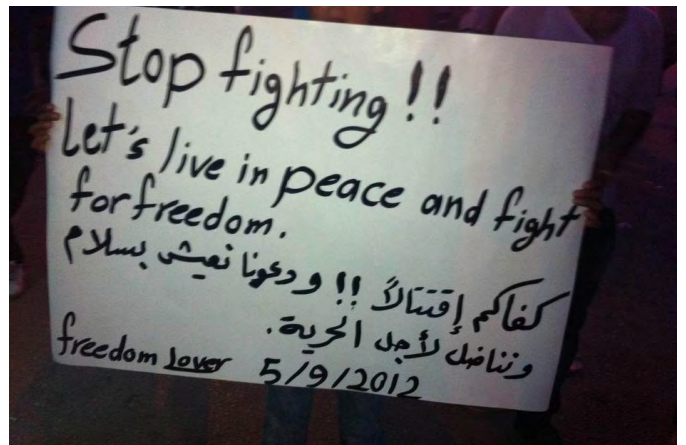 Stop fighting !!
Let's live in peace and fight
for freedom.
كفاكم إقتتالاً !! ودعونا نعيش بسلام
ونناضل لأجل الحرية.
freedom Lover 5/9/2012